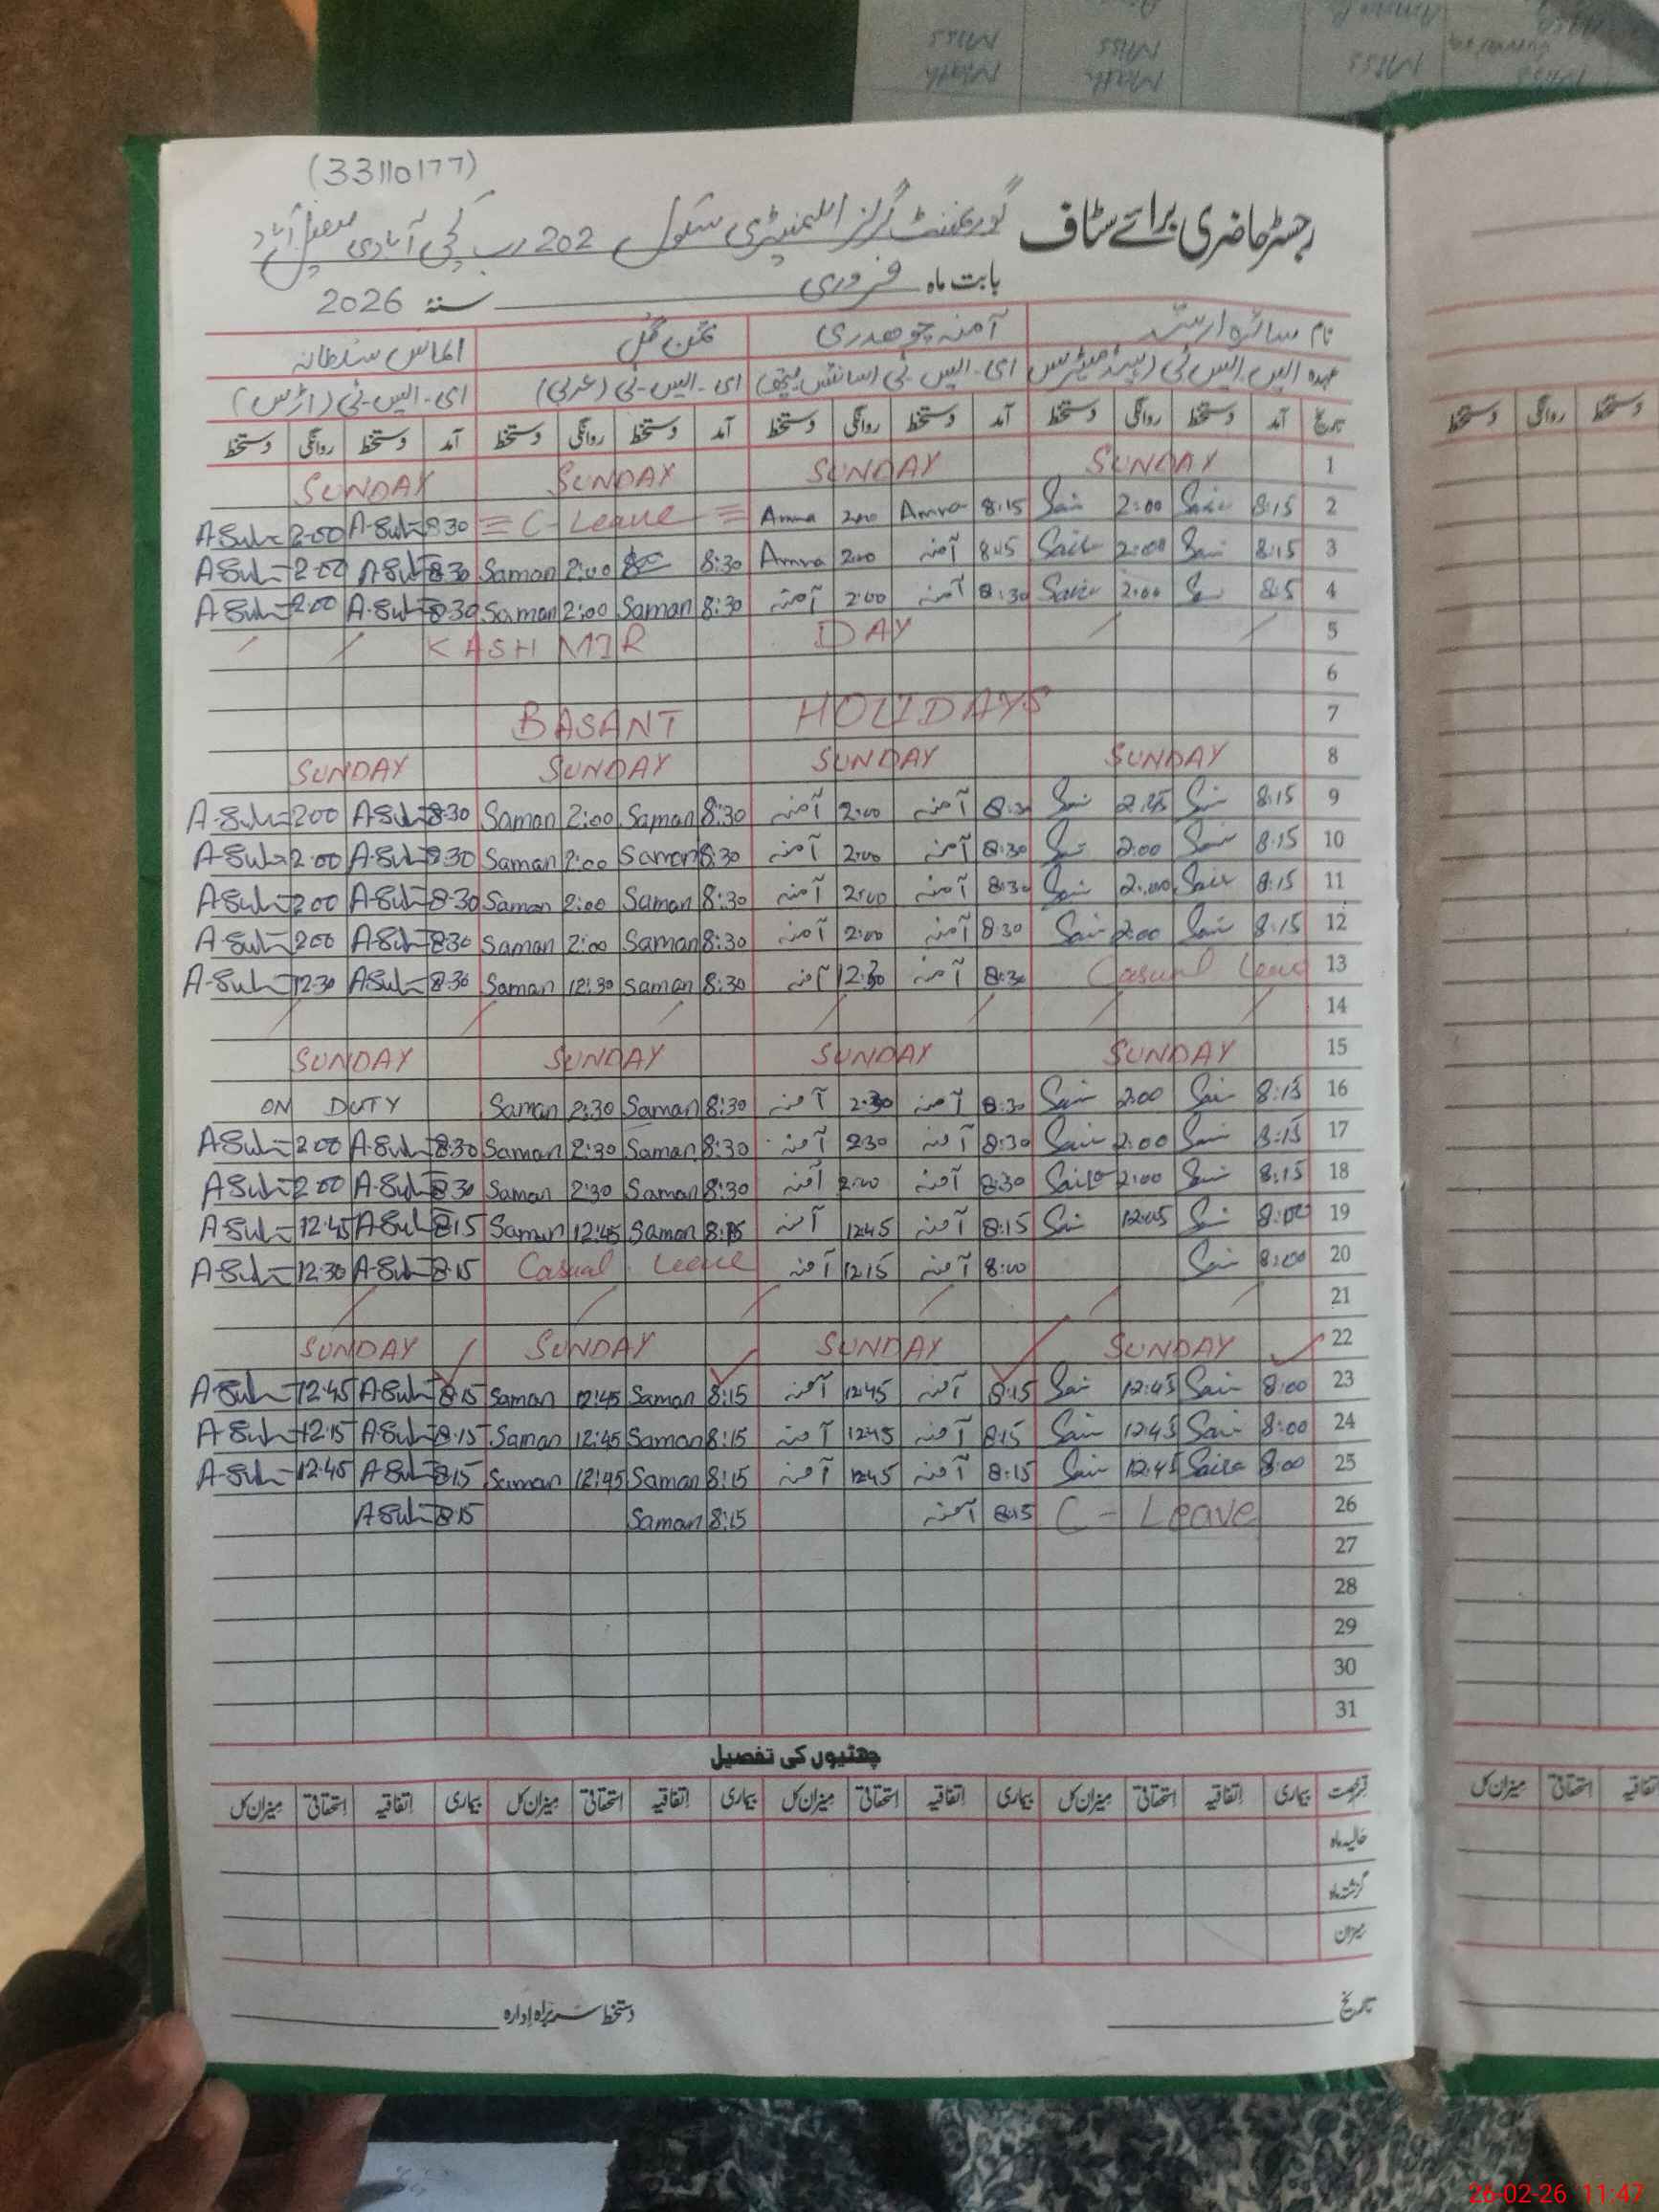 (33110177)
رجسٹر حاضری برائے سٹاف گورنمنٹ گرلز ایلیمنٹری سکول 202 رب کچی آبادی فیصل آباد
بابت ماہ فروری سنۃ 2026
نام سائرہ ارشد آمنہ چوھدری ثمن گل الماس سلطانہ
عہدہ ایس۔ایس۔ٹی (ہیڈ مسٹریس) ای۔ایس۔ٹی (سائنس میتھ) ای۔ایس۔ٹی (عربی) ای۔ایس۔ٹی (آرٹس)
تاریخ آمد دستخط روانگی دستخط آمد دستخط روانگی دستخط آمد دستخط روانگی دستخط آمد دستخط روانگی دستخط
1 SUNDAY SUNDAY SUNDAY SUNDAY
2 8:15 Saira 2:00 Sai 8:15 Amna 2:00 Amna C-Leave 8:30 A-Sul 2:00 A-Sul
3 8:15 Sai 2:00 Saira 8:15 آمنہ 2:00 Amna 8:30 2:00 Saman 8:30 A-Sul 2:00 A-Sul
4 8:15 Sai 2:00 Saira 8:30 آمنہ 2:00 آمنہ 8:30 Saman 2:00 Saman 8:30 A-Sul 2:00 A-Sul
5 KASHMIR DAY
6
7 BASANT HOLIDAYS
8 SUNDAY SUNDAY SUNDAY SUNDAY
9 8:15 Sai 2:45 Sai 8:30 آمنہ 2:00 آمنہ 8:30 Saman 2:00 Saman 8:30 A-Sul 2:00 A-Sul
10 8:15 Sai 2:00 Sai 8:30 آمنہ 2:00 آمنہ 8:30 Saman 2:00 Saman 8:30 A-Sul 2:00 A-Sul
11 8:15 Sair 2:00 Sai 8:30 آمنہ 2:00 آمنہ 8:30 Saman 2:00 Saman 8:30 A-Sul 2:00 A-Sul
12 8:15 Sai 2:00 Sai 8:30 آمنہ 2:00 آمنہ 8:30 Saman 2:00 Saman 8:30 A-Sul 2:00 A-Sul
13 Casual Leave 8:30 آمنہ 12:30 آمنہ 8:30 Saman 12:30 Saman 8:30 A-Sul 12:30 A-Sul
14
15 SUNDAY SUNDAY SUNDAY SUNDAY
16 8:15 Sai 2:00 Sai 8:30 آمنہ 2:30 آمنہ 8:30 Saman 2:30 Saman ON DUTY
17 8:15 Sai 2:00 Sai 8:30 آمنہ 2:30 آمنہ 8:30 Saman 2:30 Saman 8:30 A-Sul 2:00 A-Sul
18 8:15 Sai 2:00 Saira 8:30 آمنہ 2:00 آمنہ 8:30 Saman 2:30 Saman 8:30 A-Sul 2:00 A-Sul
19 8:00 Sai 12:45 Sai 8:15 آمنہ 12:45 آمنہ 8:15 Saman 12:45 Saman 8:15 A-Sul 12:45 A-Sul
20 8:00 Sai 8:00 آمنہ 12:15 آمنہ Casual Leave 8:15 A-Sul 12:30 A-Sul
21
22 SUNDAY SUNDAY SUNDAY SUNDAY
23 8:00 Sai 12:45 Sai 8:15 آمنہ 12:45 آمنہ 8:15 Saman 12:45 Saman 8:15 A-Sul 12:45 A-Sul
24 8:00 Sai 12:45 Sai 8:15 آمنہ 12:45 آمنہ 8:15 Saman 12:45 Saman 8:15 A-Sul 12:15 A-Sul
25 8:00 Saira 12:45 Sai 8:15 آمنہ 12:45 آمنہ 8:15 Saman 12:45 Saman 8:15 A-Sul 12:45 A-Sul
26 C-Leave 8:15 آمنہ 8:15 Saman 8:15 A-Sul
27
28
29
30
31
چھٹیوں کی تفصیل
قسم رخصت بیماری اتفاقیہ استحقاقی میزان کل بیماری اتفاقیہ استحقاقی میزان کل بیماری اتفاقیہ استحقاقی میزان کل بیماری اتفاقیہ استحقاقی میزان کل
حالیہ ماہ
گزشتہ ماہ
میزان
تاریخ دستخط سربراہ ادارہ
26-02-26 11:47